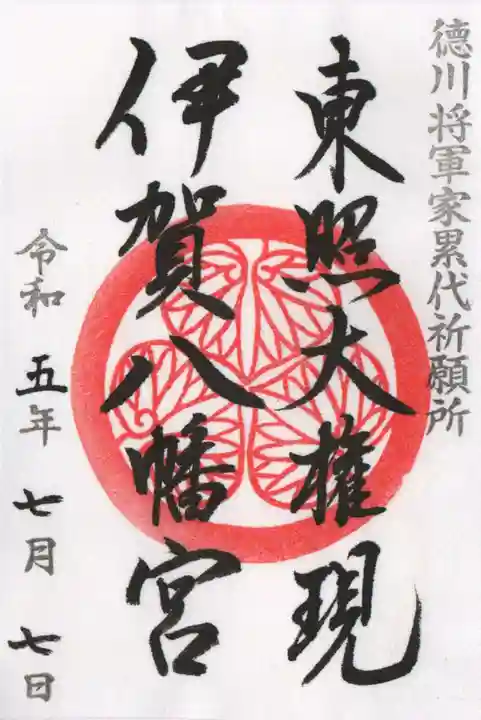 徳川将軍家累代祈願所
東照大権現
伊賀八幡宮
令和五年七月七日